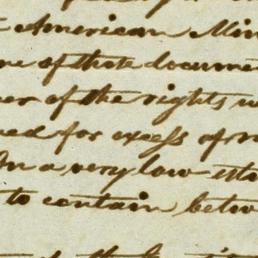 American Min
ne of that docume
er of the rights w
ed for excess of
In a very low est
to contain betw